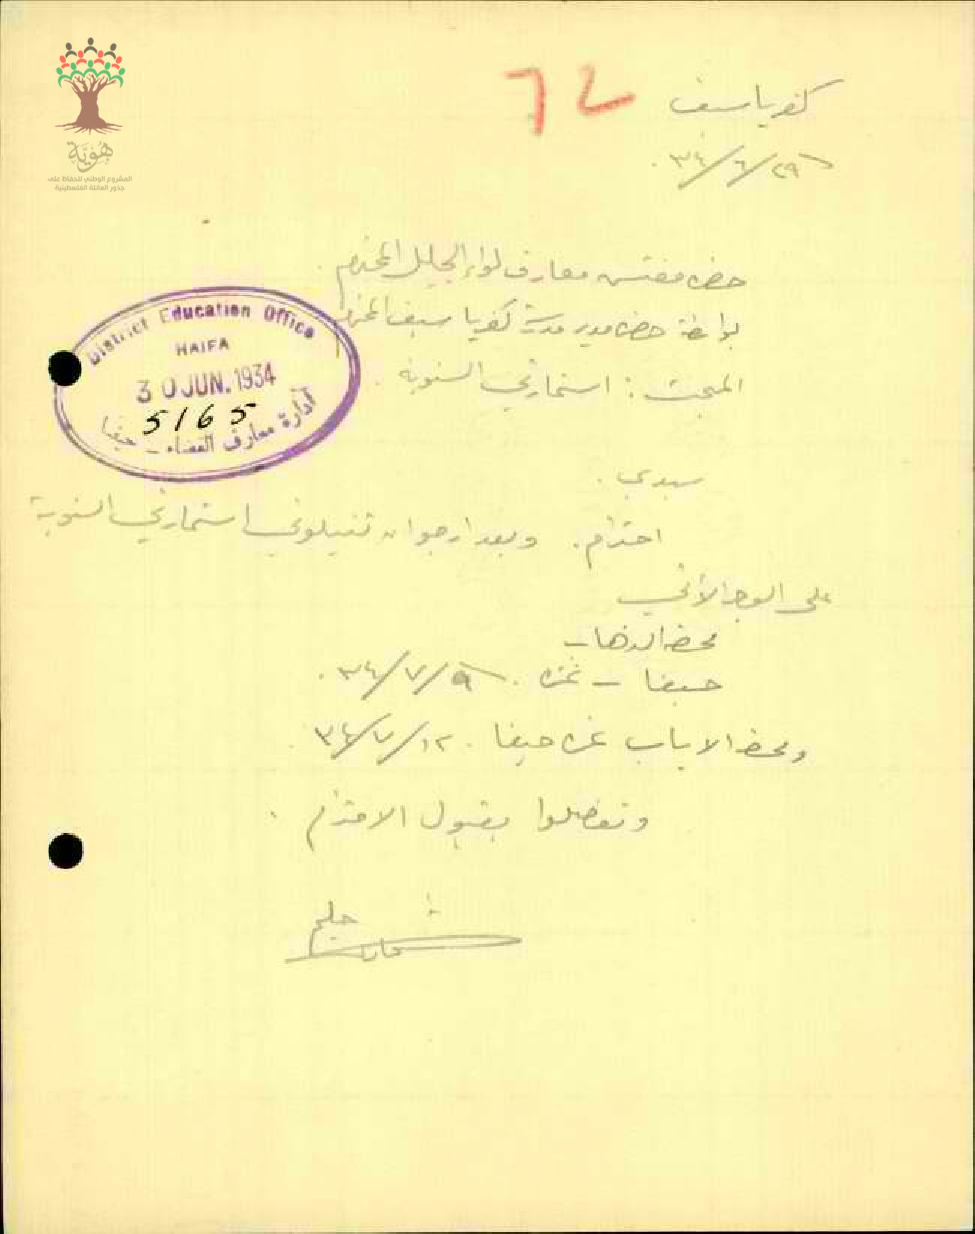 هُوِيَّة
المشروع الوطني للحفاظ على
جذور العائلة الفلسطينية
٦٢
كفرياسيف
٢٩/٦/٣٤
حضرة مفتش معارف لواء الجليل المحترم
بواسطة حضرة مدير مدرسة كفرياسيف المحترم
المبحث : استمارتي السنوية .
District Education Office
HAIFA
30 JUN. 1934
5165
ادارة معارف القضاء - حيفا
سيدي .
احترام . وبعد ارجو ان تنيلوني استمارتي السنوية
على الوجه الآتي
محطة الذهاب
حيفا - غزة . ٩/٧/٣٤ .
ومحطة الاياب غزة حيفا . ١٢/٧/٣٤ .
وتفضلوا بقبول الاحترام .